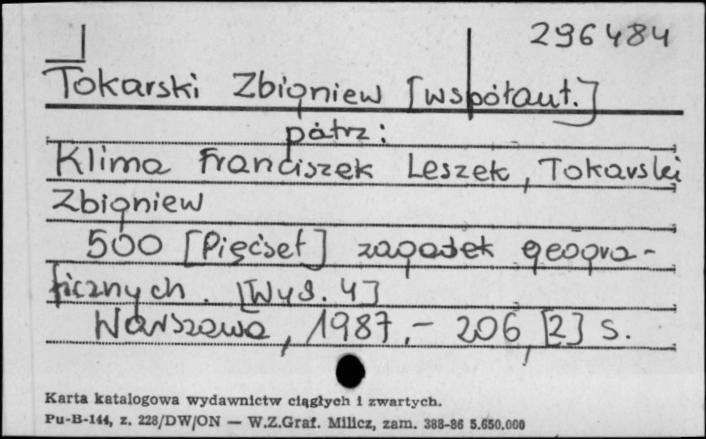 296484
Tokarski Zbigniew [współaut.]
patrz:
Klima Franciszek Leszek, Tokarski
Zbigniew
500 [Pięćset] zagadek geogra-
ficznych. [Wyd. 4]
Warszawa, 1987.- 206, [2] s.
Karta katalogowa wydawnictw ciągłych i zwartych.
Pu-B-144, z. 228/DW/ON — W.Z.Graf. Milicz, zam. 388-86 5.650.000